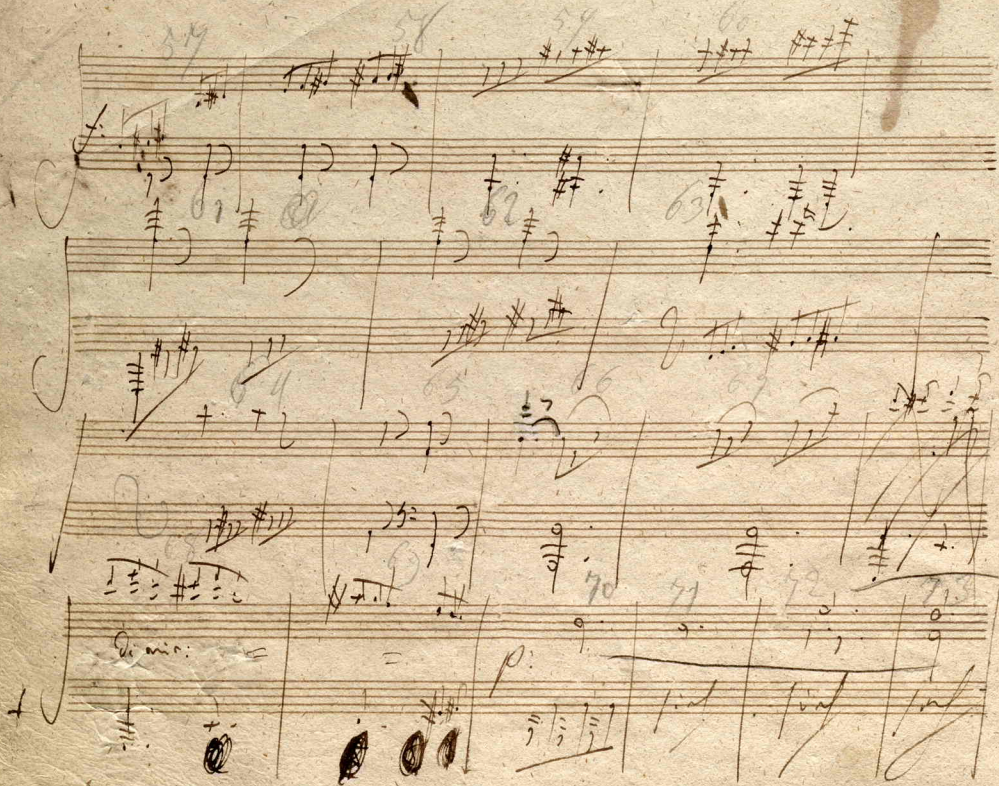 57 58 59 60
f:
61 62 63
64 65 66 67
68 69 70 71 72 73
dimin: = =
p: